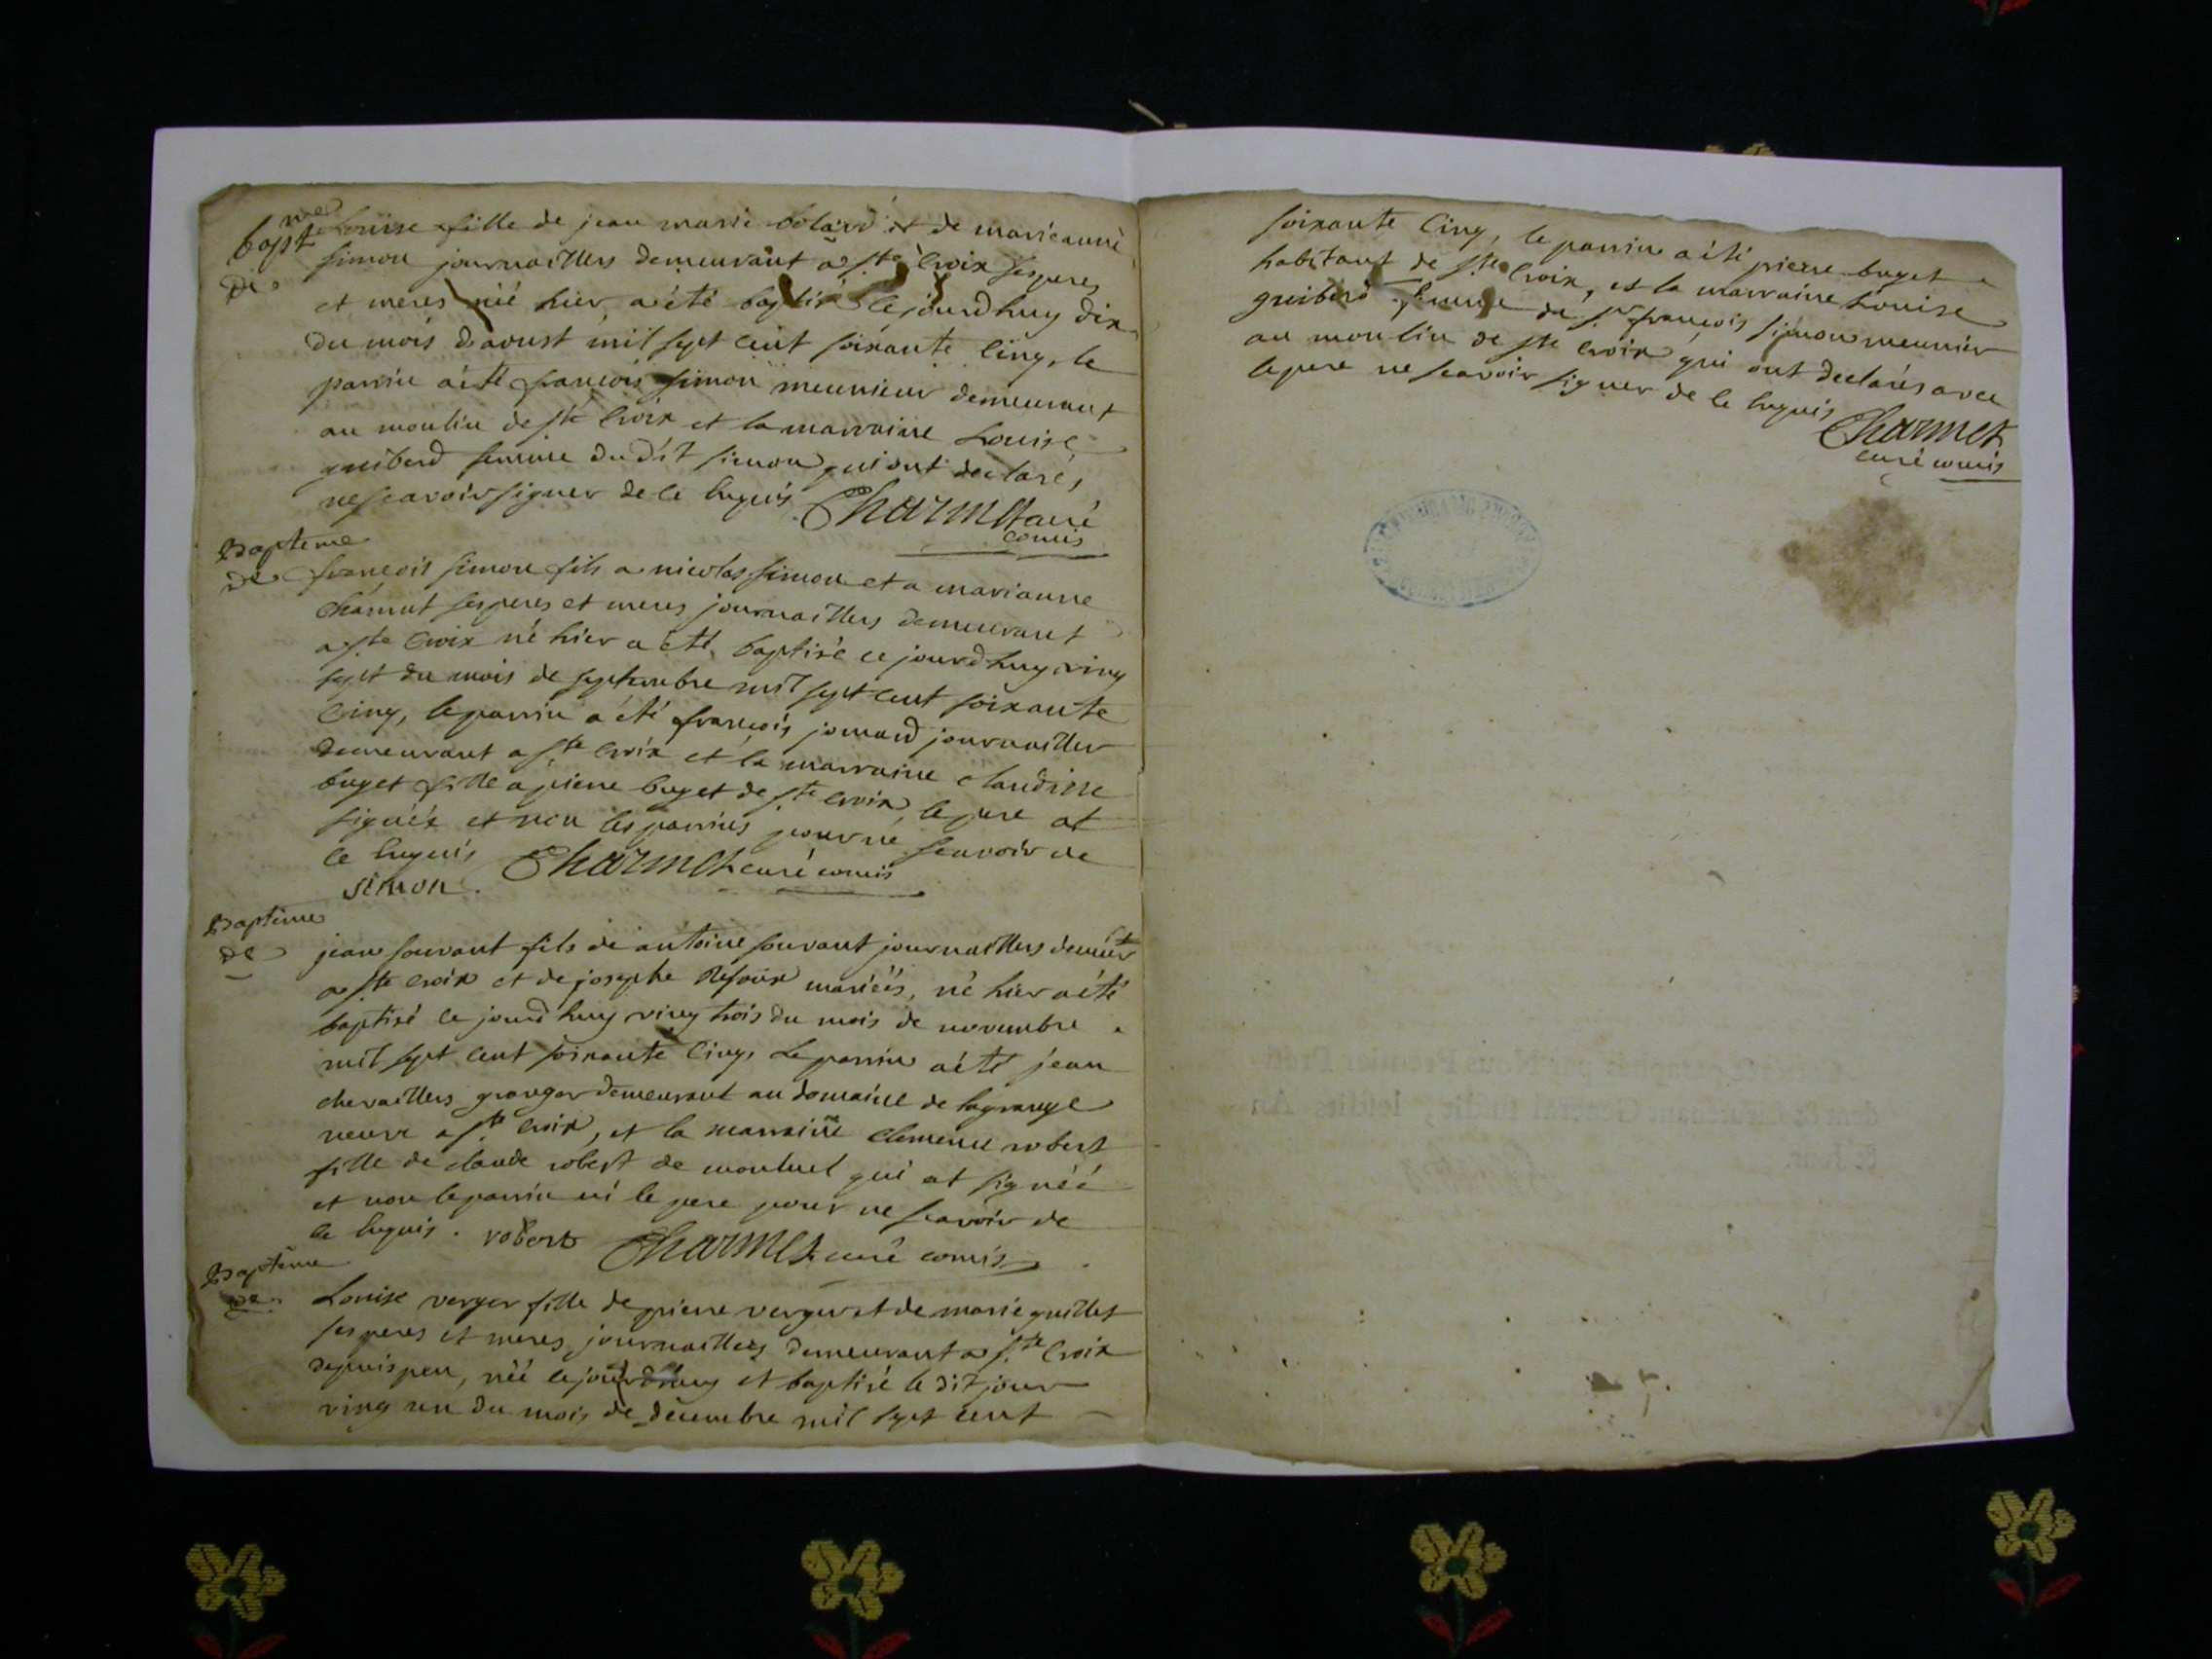 bapt.me Louise fille de jean marie bolard et de marieanne
de simon journailler demeurant a Ste Croix ses peres
et meres née hier, a été baptisé ce jourd huy dix
du mois d'aoust mil sept cent soixante cinq, le
parrin a été françois simon meunieur demeurant
au moulin de Ste Croix et la marraine Louise
guiberd femme du dit simon qui ont declarés
ne scavoir signer de ce enquis. Charmet curé
comis
Bapteme
de françois simon fils a nicolas simon et a marianne
Charmut ses peres et meres journaillers demeurant
a Ste Croix né hier a été baptisé ce jourd huy ving
sept du mois de septembre mil sept cent soixante
cinq, le parrin a été françois jomard journailler
demeurant a Ste Croix et la marraine claudine
buget fille a pierre buget de Ste Croix, le pere at
signéz et non les parrins pour ne scavoir de
ce enquis Charmet curé comis
simon.
Bapteme
de jean souvant fils de antoine souvant journaillers demeur
a Ste Croix et de josephe mariéés, né hier a été
baptisé ce jourd huy ving trois du mois de novembre
mil sept cent soixante cinq, Le parrin a été jean
chevaillers granger demeurant au domaine de lagrange
neuve a Ste Croix, et la marraine clemence robert
fille de claude robert de montluel qui at signéé
et non le parrin ni le pere pour ne scavoir de
ce enquis. robert Charmet curé comis
Bapteme
de Louise verger fille de pierre verger et de marie guillet
ses peres et meres journaillers demeurant a Ste Croix
depuis peu, néé ce jourdhuy et baptisé le dit jour
ving un du mois de decembre mil sept cent
soixante cinq, le parrin a été pierre buget
habitant de Ste Croix, et la marraine Louise
guiberd femme de Sr françois simon meunier
au moulin de Ste Croix qui ont declarés avec
le pere ne scavoir signer de ce enquis Charmet
curé comis